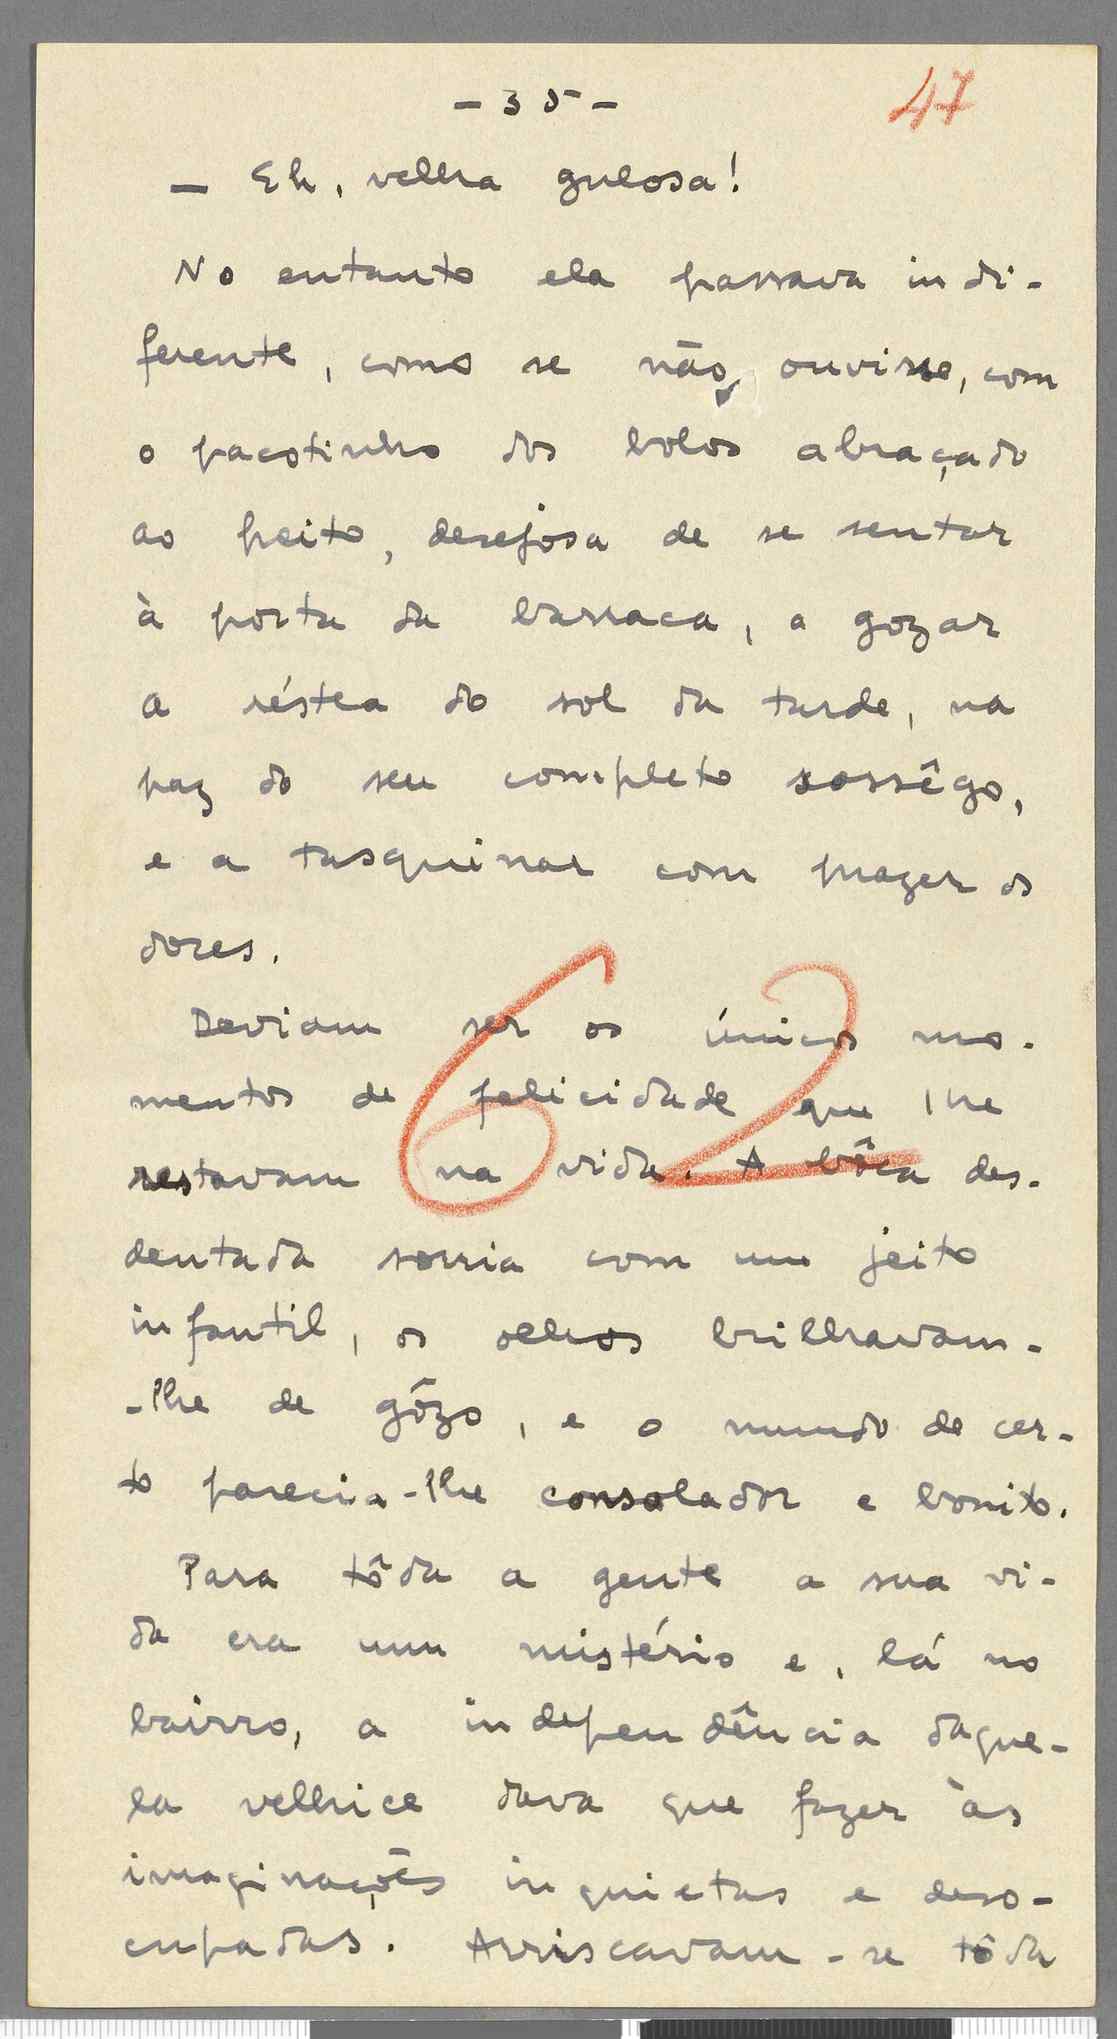 - 35 -
47
- Eh, velha gulosa!
No entanto ela passava indi-
ferente, como se não ouvisse, com
o pacotinho dos bolos abraçado
ao peito, desejosa de se sentar
à porta da barraca, a gozar
a réstea do sol da tarde, na
paz do seu completo sossêgo,
e a tasquinar com prazer os
dores.
Deviam ser os únicos mo-
mentos de felicidade que lhe
restavam na vida. A bôca des-
62
dentada sorria com um jeito
infantil, os olhos brilhavam-
-lhe de gôzo, e o mundo de cer-
to parecia-lhe consolador e bonito.
Para tôda a gente a sua vi-
da era um mistério e, lá no
bairro, a independência daque-
la velhice dava que fazer às
imaginações inquietas e deso-
cupadas. Arriscavam-se tôda